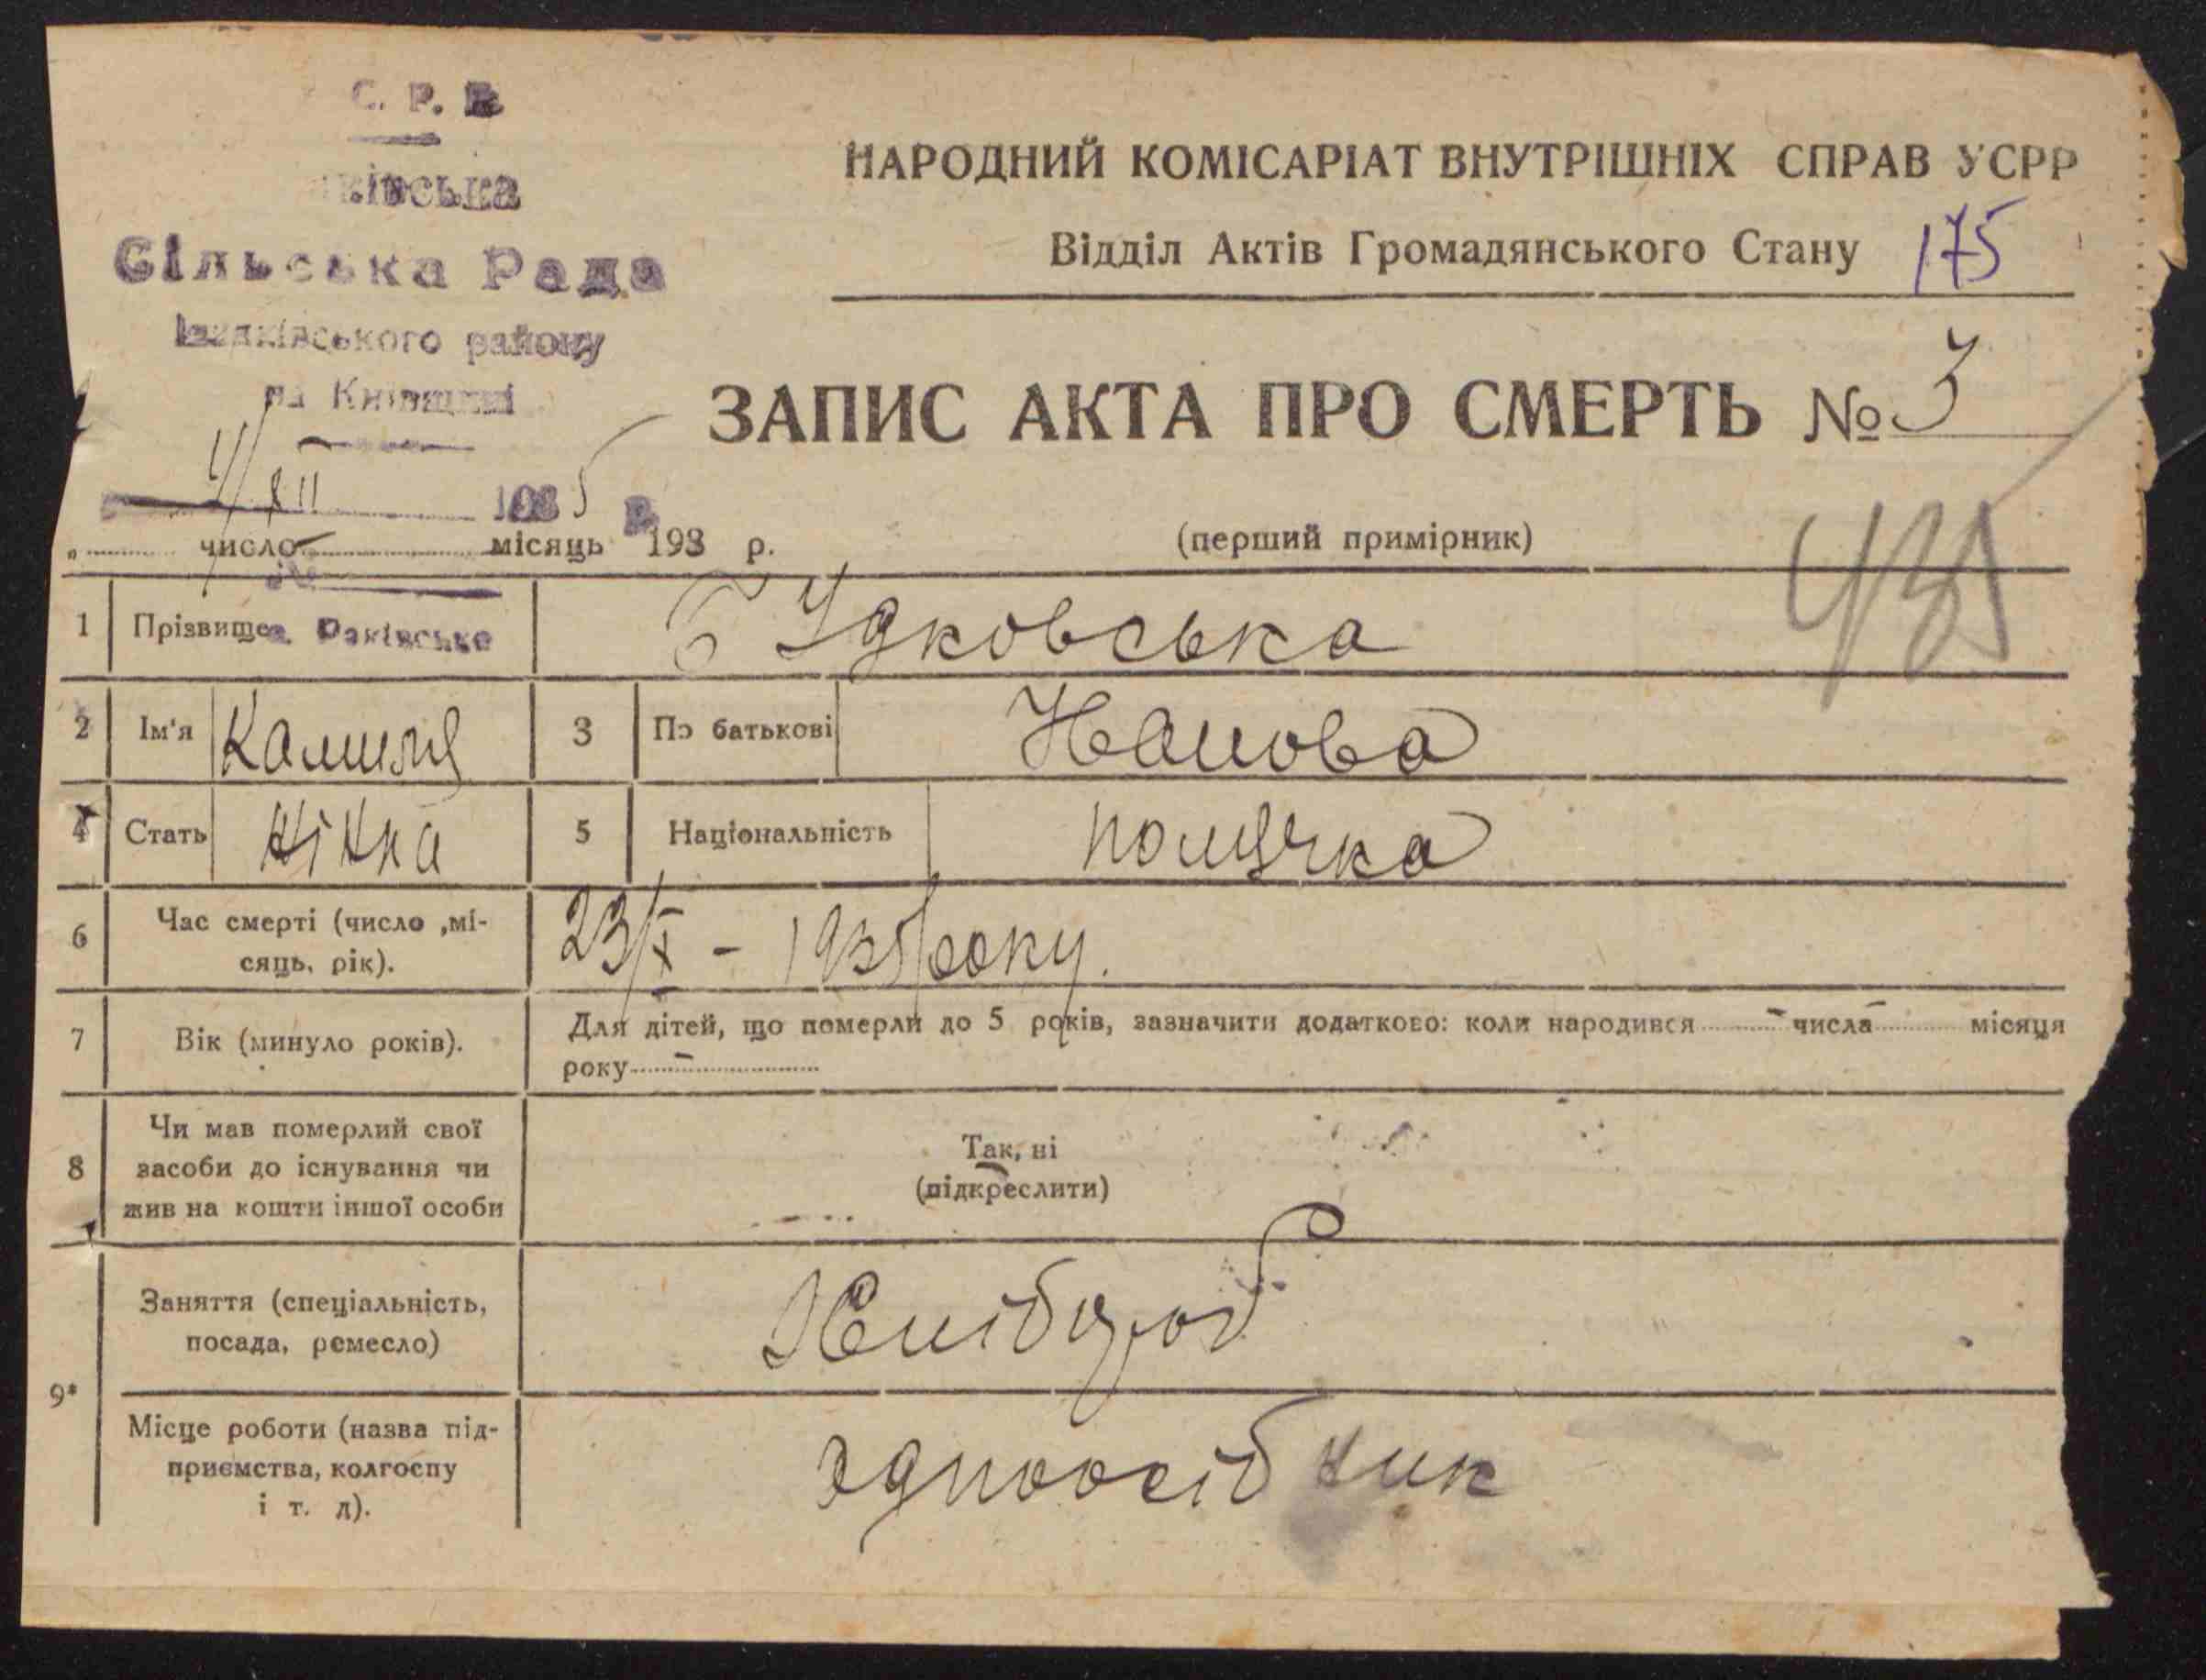 С. Р. Р.
Сільська Рада
району
на Київщині
НАРОДНИЙ КОМІСАРІАТ ВНУТРІШНІХ СПРАВ УСРР
Відділ Актів Громадянського Стану 175
ЗАПИС АКТА ПРО СМЕРТЬ № 3
4/XII 1935 р.
" число місяць 193 р.
(перший примірник)
1 Прізвище Ідковська
2 Ім'я Камиля 3 По батькові Іванова
4 Стать жінка 5 Національність полячка
6 Час смерті (число ,мі-
сяць, рік).
23/X - 1935 року.
7 Вік (минуло років).
Для дітей, що померли до 5 років, зазначити додатково: коли народився числа місяця
року
8 Чи мав померлий свої
засоби до існування чи
жив на кошти іншої особи
Так, ні
(підкреслити)
9*
Заняття (спеціальність,
посада, ремесло)
Хлібороб
Місце роботи (назва під-
приємства, колгоспу
і т. д).
одноосібник